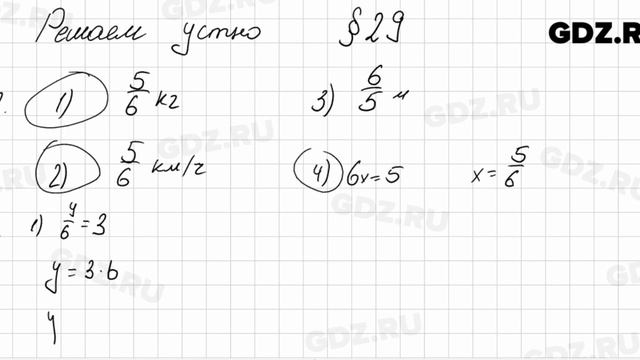 Решаем устно §29
GDZ.RU
1) 5/6 кг 3) 6/5 м
2) 5/6 км/ч 4) 6x=5 x=5/6
1) y/6=3
y=3·6
y
GDZ.RU
GDZ.RU
GDZ.RU
GDZ.RU
GDZ.RU
GDZ.RU